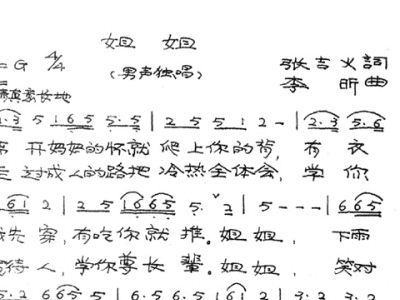 姐 姐
= G 4/4 (男声独唱) 张吉义詞
李 昕曲
2·3 5 1 6 5 5·5 | 2 5 5 1 2 - | 2·3 5·6
开妈妈的怀就爬上你的背, 有 衣
过成人的路把冷热全体会, 学 你
6 1 2 | 2 5 1 6 6 5 5· 3 | 5 - - - | 6 6 5
先穿, 有吃你就推. 姐姐, 下雨
待人, 学你尊长辈. 姐姐, 笑对
5·2 6 6 5 5 | 5·6 5 1 6 1 2 | 3·2 3·